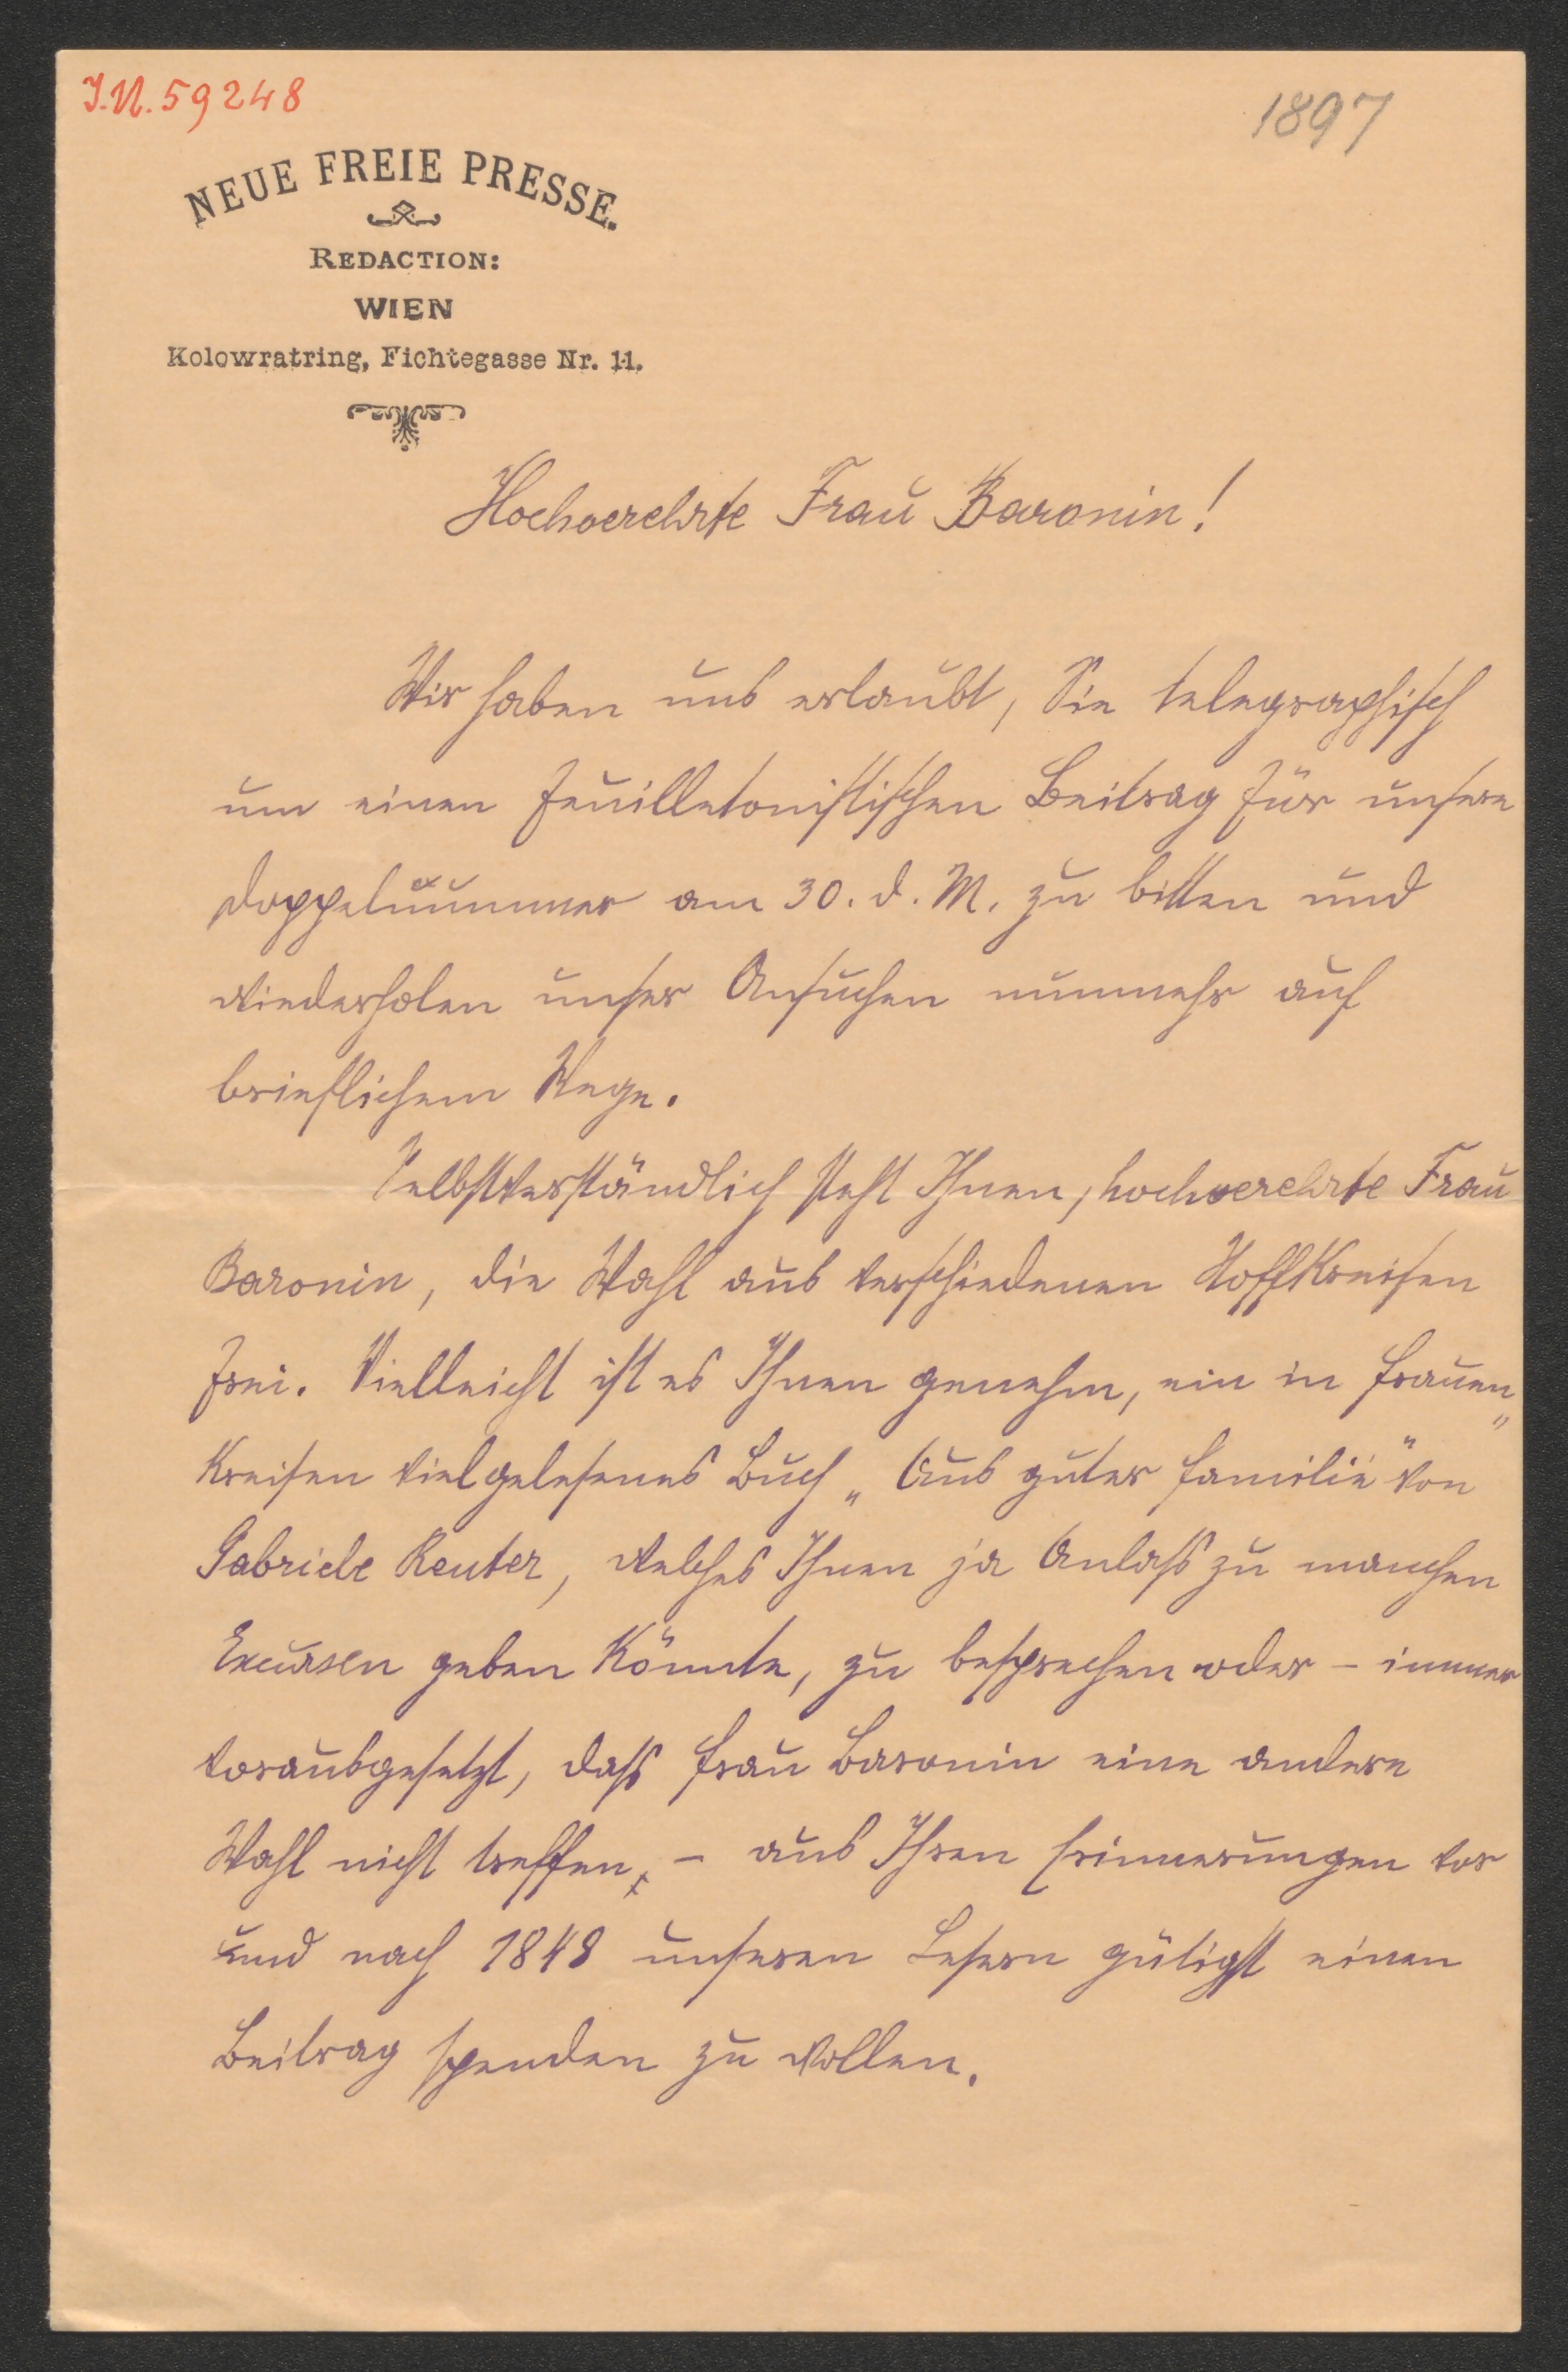 J.N. 59248
1897
NEUE FREIE PRESSE.
REDACTION:
WIEN
Kolowratring, Fichtegasse Nr. 11.
Hochverehrte Frau Baronin!
Wir haben uns erlaubt, Sie telegraphisch
um einen feuilletonistischen Beitrag für unsere
Doppelnummer am 30. d. M. zu bitten und
wiederholen unser Ansuchen nunmehr auf
brieflichem Wege.
Selbstverständlich steht Ihnen, hochverehrte Frau
Baronin, die Wahl aus verschiedenen Stoffkreisen
frei. Vielleicht ist es Ihnen genehm, ein in Frauen„
kreisen vielgelesenes Buch „Aus guter Familie" von
Gabriele Reuter, welches Ihnen ja Anlaß zu manchen
Excursen geben könnte, zu besprechen oder – immer
vorausgesetzt, daß Frau Baronin eine andere
Wahl nicht treffen, – aus Ihren Erinnerungen vor
und nach 1848 unseren Lesern gütigst einen
Beitrag spenden zu wollen.